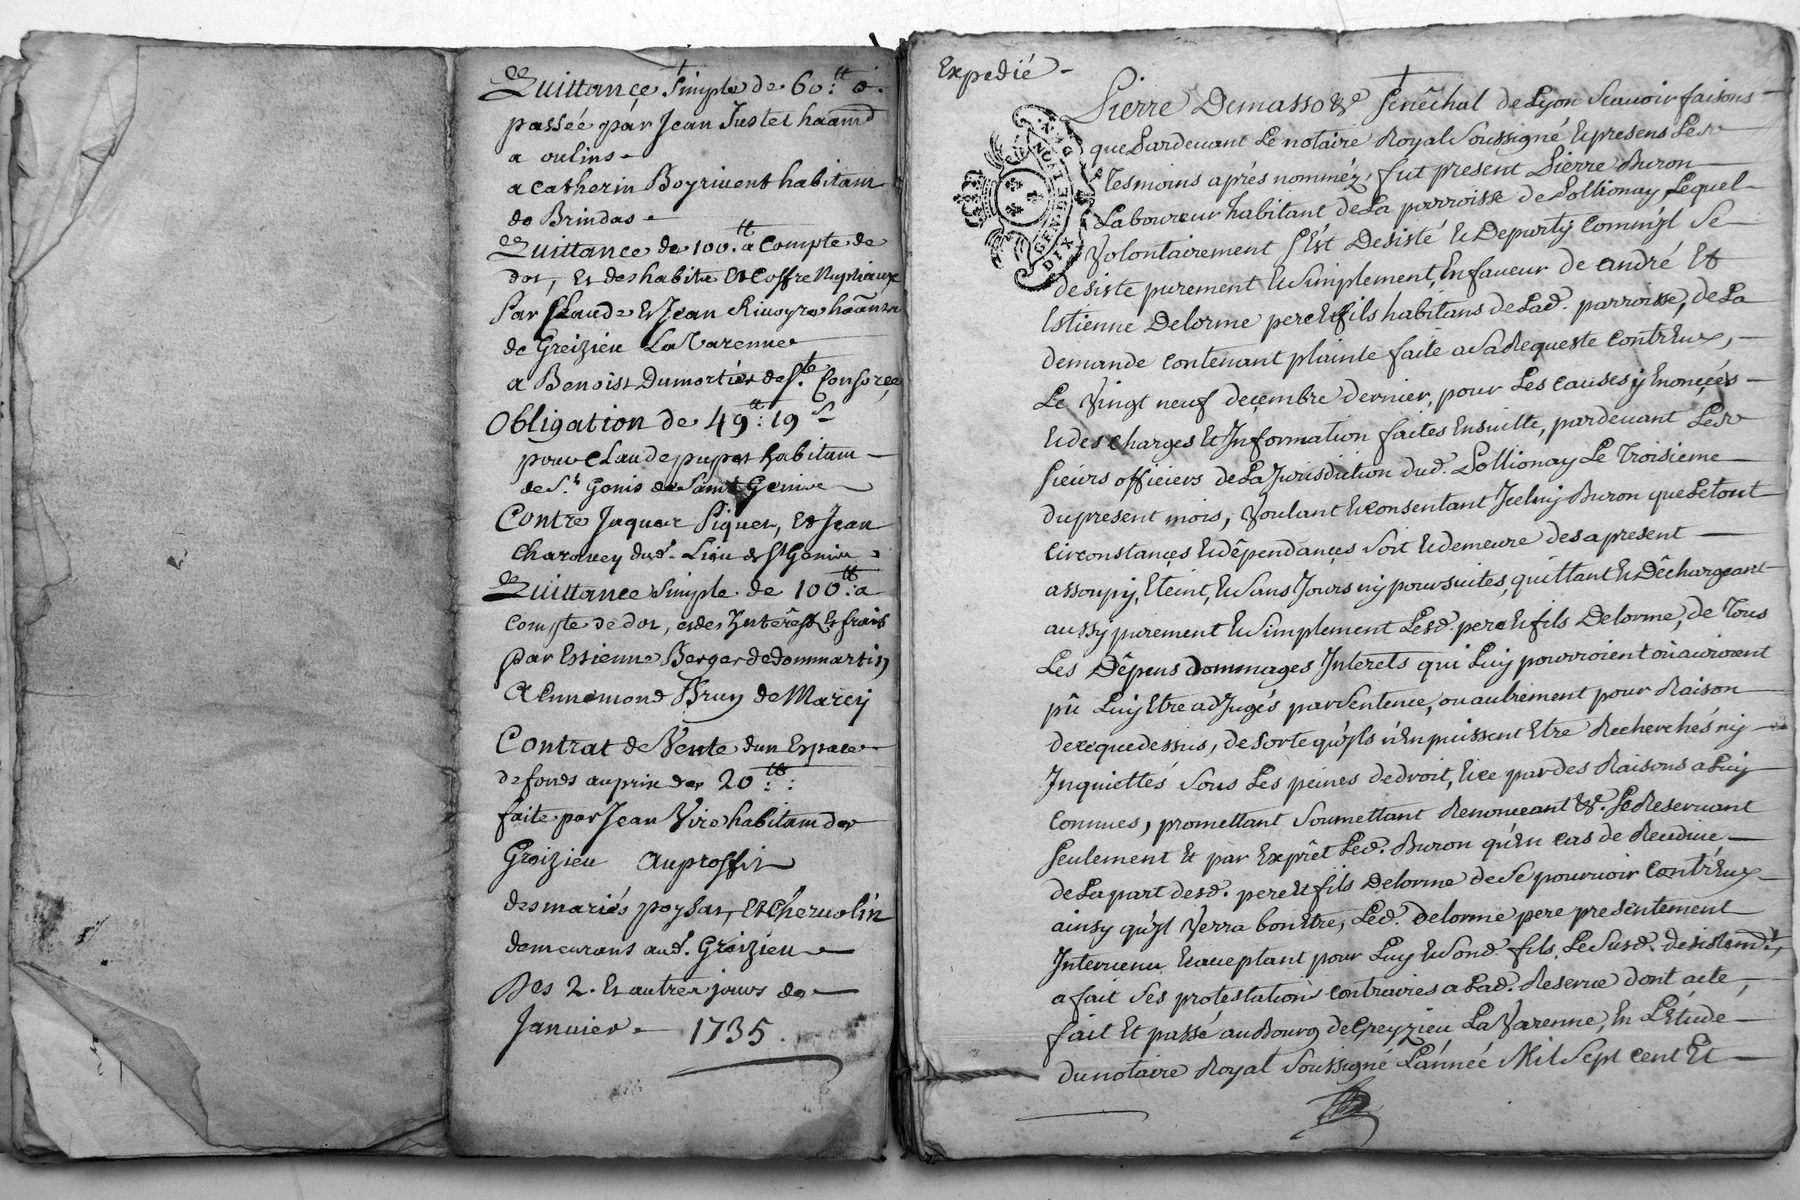 Quittance Simple de 60.tt a.
passée par Jean Justet haânt
a oulins
a Catherin Boyrivent habitam
de Brindas
Quittance de 100.tt a Compte de
dot, Et des habits Et Coffre Nuptiaux
Par Claude Et Jean Rivoyre haânts
de Greizieu La Varenne
a Benoist Dumortier de Ste. Consorce
Obligation de 49tt: 19s
pour Claude pupat habitam
de St. Genis de Saint Genive
Contre Jaques Piquet, Et Jean
Charavey dud. Lieu de St Genive
Quittance Simple de 100tt: a
Compte de dot, et des Interêst Et frais
par Estienne Berger de dommartin
A Ennemond Brun de Marcy
Contrat de Vente dun Espace
de fonds au prix de 20tt:
faite par Jean Viro habitam de
Greizieu au proffit
des mariés poysat, Et Chervolin
demeurans aud. Greizieu
Des 2. Et autres jours de
Janvier 1735.
Expedié
Pierre Demasso &c Senêchal de Lyon Scavoir faisons
que Pardevant Le notaire Royal Soussigné Et presens Les
Tesmoins aprés nomméz, fut present Pierre Buron
Laboureur habitant de La parroisse de Pollionay Lequel
Volontairement S'est Desisté Et Deparity Comm'yl Se
desiste purement Et Simplement, En faveur de andré Et
Estienne Delorme pere Et fils habitans de Lad. parroisse, de La
demande contenant plainte faite a Sa Requeste contr'Eux,
Le Vingt neuf decembre dernier, pour Les causes y Enoncées
Et des charges Et Information faites Ensuitte, pardevant Les
Sieurs officiers de La Jurisdiction dud. Pollionay Le Troisieme
du present mois, Voulant Et consentant Jceluy Buron que Le tout
circonstances Et dêpendances Soit Et demeure des a present
assoupy, Eteint, Et Sans Jours ny poursuites, quittant Et Dêchargeant
aussy purement Et Simplement Lesd. pere Et fils Delorme, de Tous
Les Dêpens Dommages Interets qui Luy pourroient ou auroient
pû Luy Etre adjugés par Sentence, ou autrement pour Raison
de ce que dessus, de Sorte qu'yls n'En puissent Etre Recherchés ny
Inquiettés Sous Les peines de droit, Et ce par des Raisons a Luy
Connues, promettant Soumettant Renonceant &c. Se Reservant
Seulement Et par Exprêt Led. Buron qu'En cas de Recidive
de La part desd. pere Et fils Delorme de Se pourvoir contr'Eux
ainsy qu'yl Verra bon Etre, Led. Delorme pere presentement
Intervenu Et acceptant pour Luy Et Sond. fils, Le Susd. desistemt,
a fait Ses protestations contraires a Lad. Reserve dont acte,
fait Et passé au Bourg de Greyzieu La Varenne, En L'Etude
du notaire Royal Soussigné L'année Mil Sept cent Et
GEN. DE LYON
DIX DEN